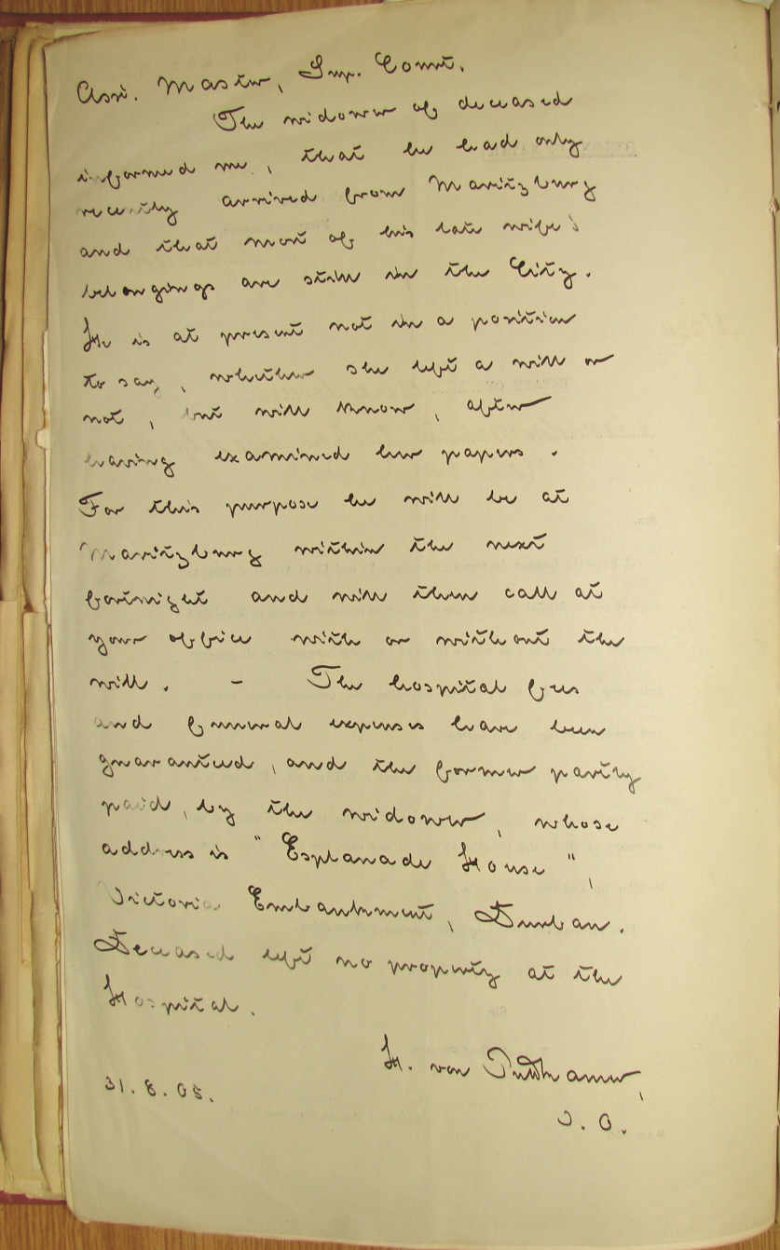 Asst. Master, Sup. Court.
The widower of deceased
informed me, that he had only
recently arrived from Maritzburg
and that most of his late wife's
belongings are still in the City.
He is at present not in a position
to say, whether she left a will or
not, but will know, after
having examined her papers.
For this purpose he will be at
Maritzburg within the next
fortnight and will then call at
your office with or without the
will. - The hospital fees
and funeral expenses have been
guaranteed, and the former partly
paid, by the widower, whose
address is "Esplanade House",
Victoria Embankment, Durban.
Deceased left no property at the
Hospital.
H. von Puttkamer,
31.8.05.